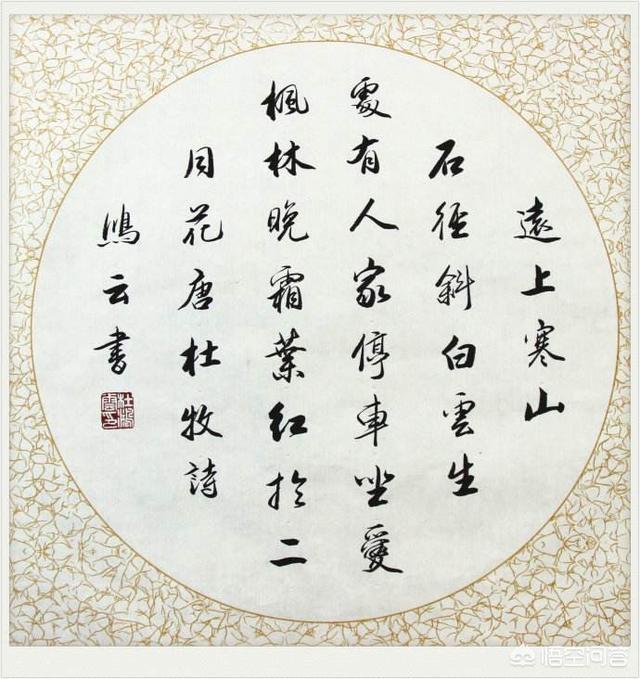 遠上寒山
石徑斜白雲生
處有人家停車坐愛
楓林晚霜葉紅於二
月花唐杜牧詩
鴻云書
杜鴻雲印
悟空问答